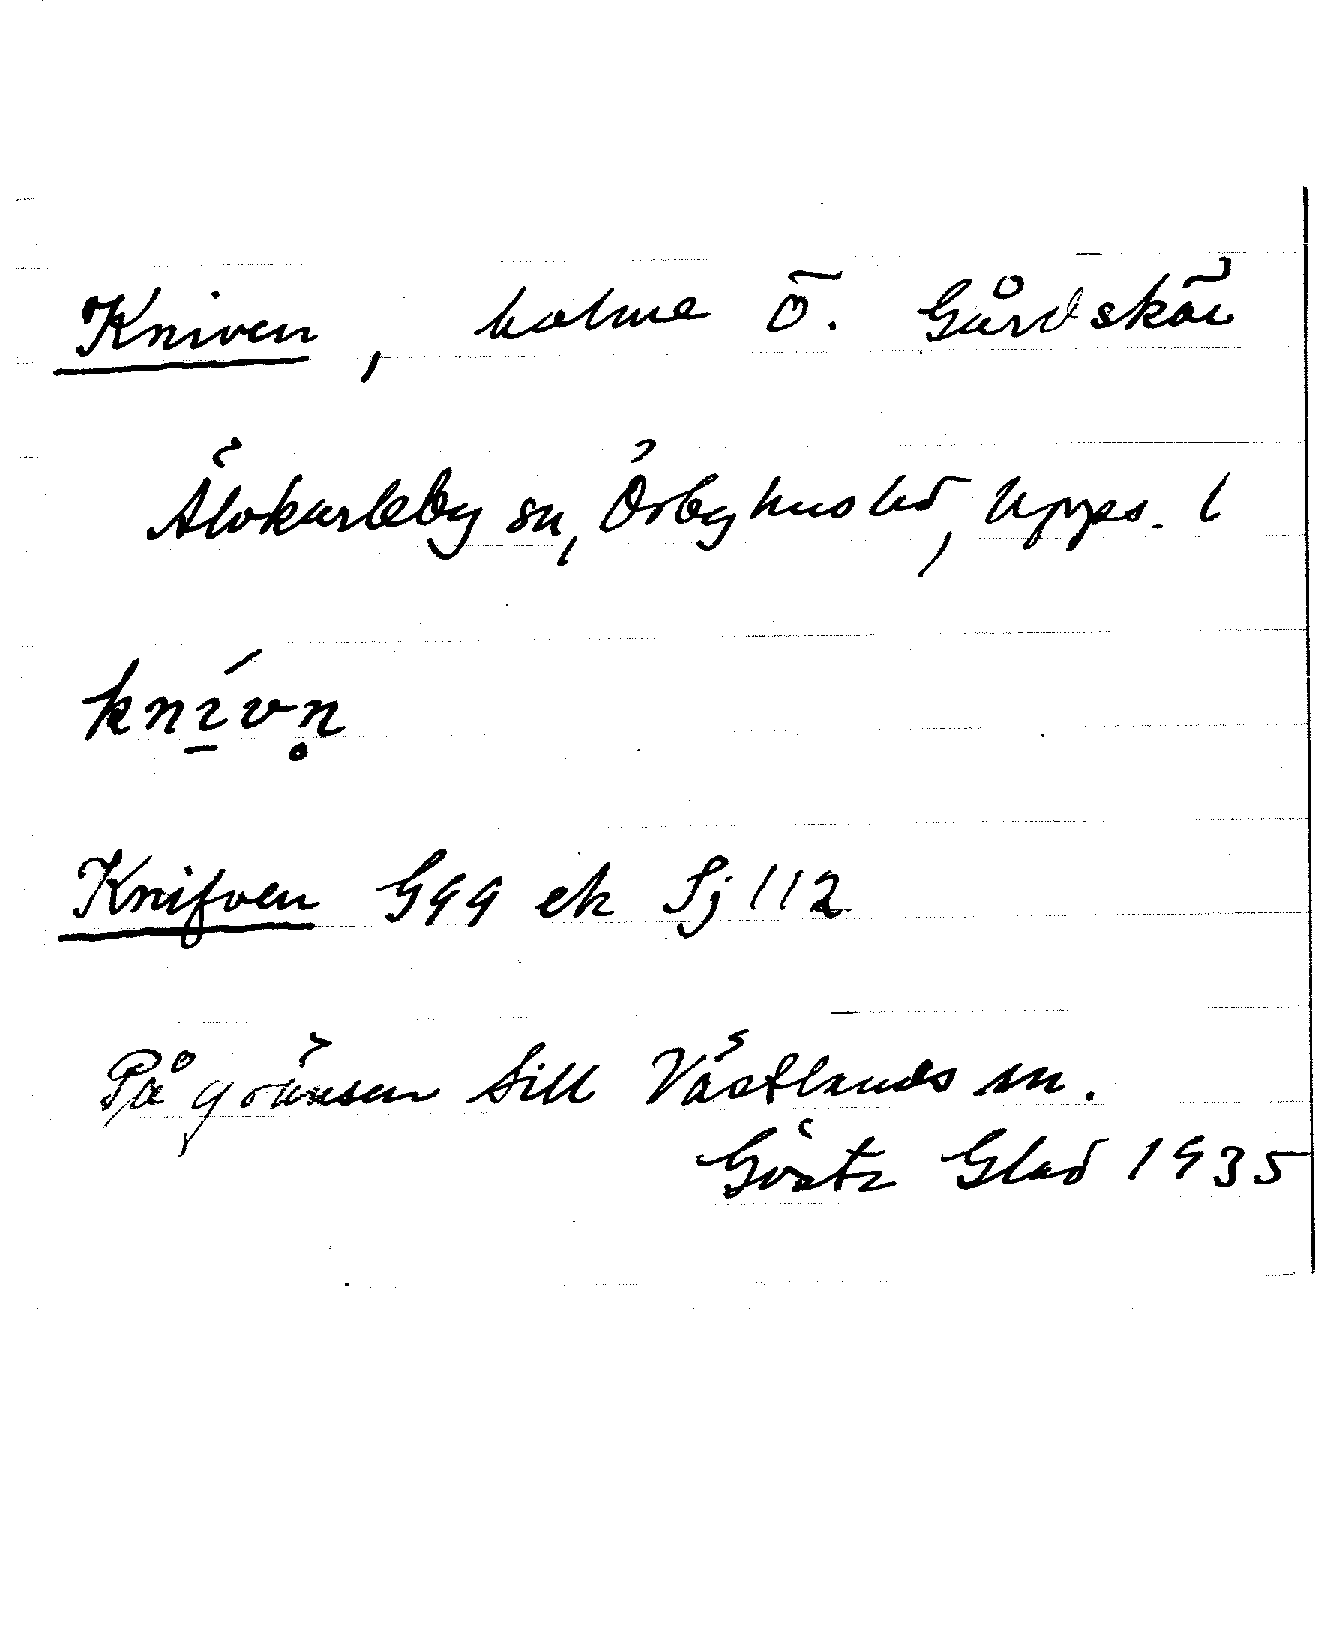 Kniven, holme Ö. Gårdskär
Älvkarleby sn, Örbyhus hd, Upps. l
knívn̥
Knifven Gqq ek Sj 112
På gränsen till Västlands sn.
Götz Glad 1935